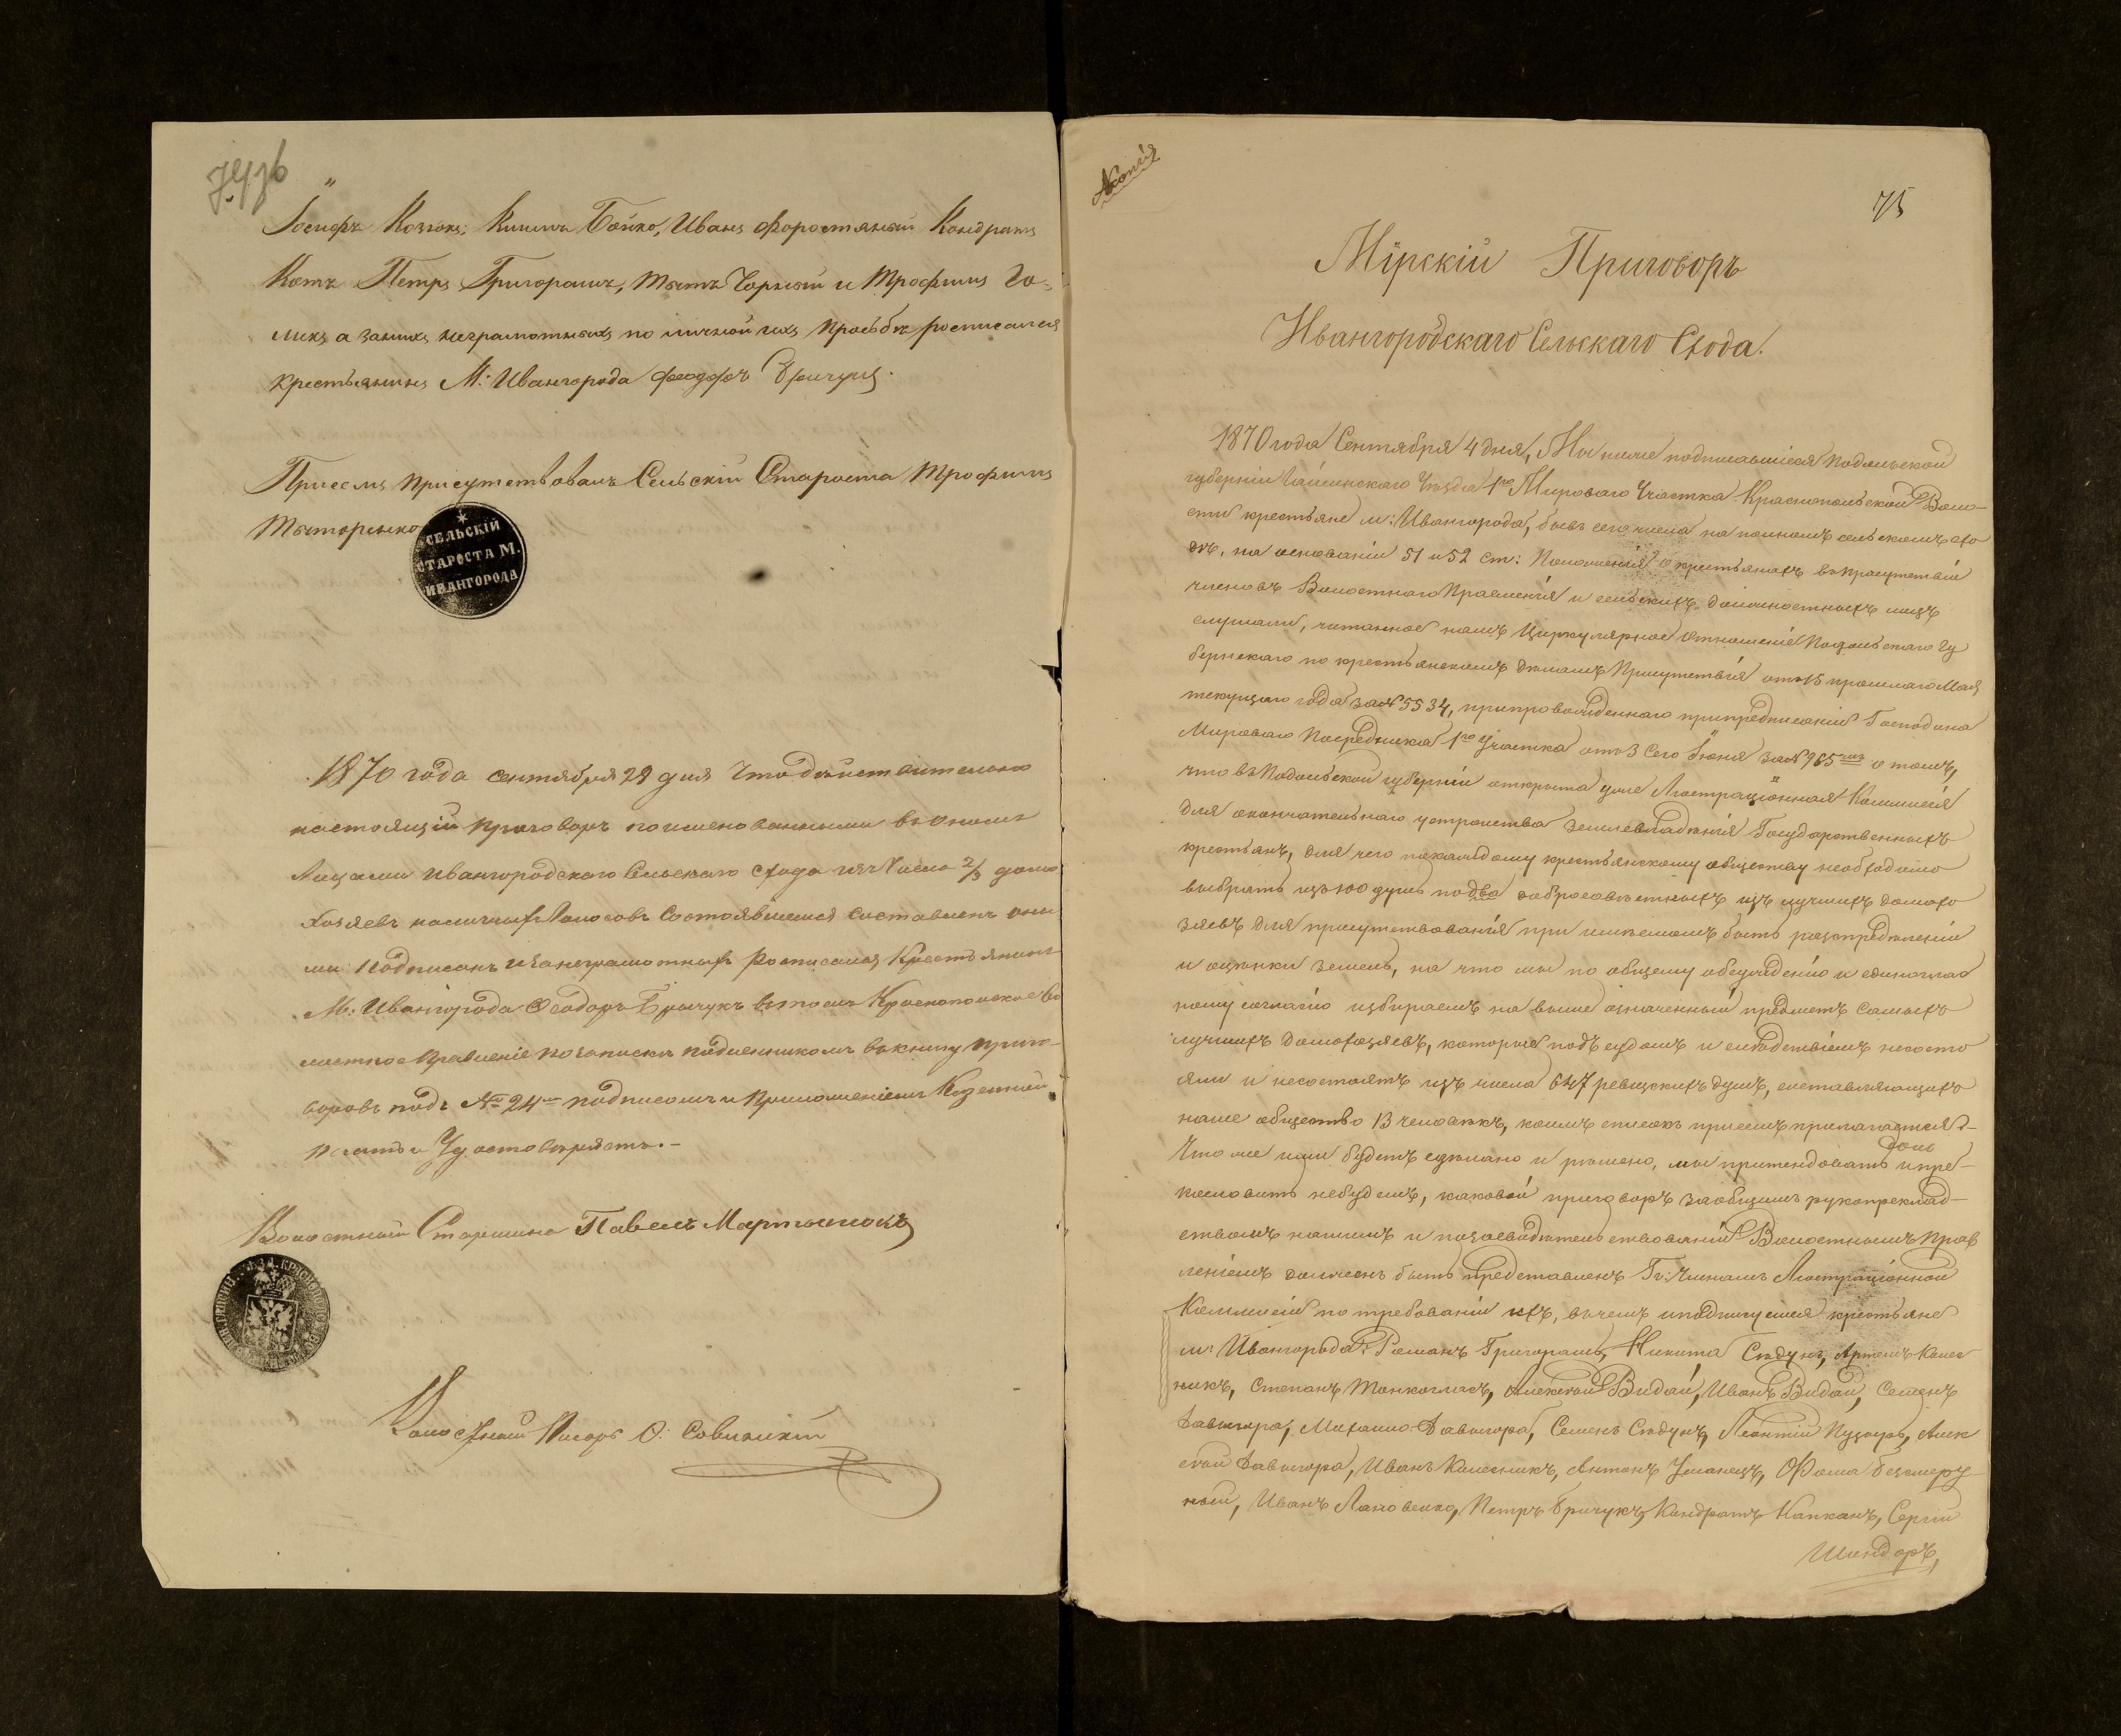 Іосифъ Козюкъ, Климъ Бойко, Иванъ Форостяный Кондратъ
Котъ Петръ Григорашъ, Тытъ Чорный и Трофимъ Го-
ликъ а занихъ неграмотныхъ по личной ихъ просьбѣ росписался
крестьянинъ М: Ивангорода Феодоръ Бричукъ.
Присемъ присутствовалъ Сельскій Староста Трофимъ
Тытаренко
СЕЛЬСКІЙ
СТАРОСТА М.
ИВАНГОРОДА
1870 года сентября 29 дня Что дѣйствительно
настоящій приговоръ поименованными въ ономъ
Лицами Ивангородскаго Сельскаго схода изъ числа 2/3 домо
хозяевъ состоявшимся составленъ они
ми подписанъ изанеграмотныхъ росписался Крестьянинъ
М: Ивангорода Феодоръ Бричукъ вътомъ Краснопольское Во
лостное Правленіе позаписки въкнигу приго-
воровъ подъ № 24мъ подписомъ и Приложеніемъ Казенной
печати Удостовѣряетъ.-
Волостный Старшина Павелъ Мартынюкъ
Волостный Писарь О. Савицкій
Копія
75
Мірскій Приговоръ
Ивангородскаго Сельскаго Схода.
1870 года Сентября 4 дня, Мы ниже подписавшіеся Подольской
губерніи Гайсинскаго Уѣзда 1го Мироваго Участка Краснопольской Воло-
сти крестьяне м: Ивангорода, бывъ сего числа на полномъ сельскомъ схо
дѣ, на основаніи 51 и 52 ст: Положенія о крестьянахъ въ присутствіи
членовъ Волостнаго Правленія и сельскихъ должностныхъ лицъ
слушали, читанное намъ Циркулярное отношеніе Подольскаго Гу
бернскаго по крестьянскимъ дѣламъ Присутствія отъ 15 прошлаго Мая
текущаго года за № 5534, припровожденнаго припредписаніи Господина
Мироваго Посредника 1го Участка отъ 3 Сего Іюня за № 965мъ о томъ,
что въ Подольской губерніи открыта уже Люстраціонная Коммисія
для окончательнаго устройства землевладѣнія Государственныхъ
крестьянъ, для чего покаждому крестьянскому обществу необходимо
выбрать изъ 100 душъ по два добросовѣстныхъ изъ лучшихъ домохо
зяевъ для присутствованія при имѣемомъ быть разпредѣленіи
и оцѣнки земель, на что мы по общему обсужденію и единоглас
ному согласію избираемъ на выше означенный предметъ самыхъ
лучшихъ домохозяевъ, которые подъ судомъ и слѣдствіемъ несосто
яли и несостоятъ изъ числа 647 ревизскихъ душъ, составляющихъ
наше общество 13 человѣкъ, коимъ списокъ присемъ прилагается.-
Что же ими будетъ сдѣлано и рѣшено, мы притендовать и пре-
кословить небудемъ, каковой приговоръ заобщимъ рукоприклад-
ствомъ нашимъ и позасвидѣтельствованіи Волостнымъ Прав
леніемъ долженъ быть представленъ Гг: Членамъ Люстраціонной
Коммисіи по требованіи ихъ, въ чемъ иподпишуемся крестьяне
м: Ивангорода: Романъ Григорашъ, Никита Сѣдунъ, Артемъ Колес-
никъ, Степанъ Тонкогласъ, Алексѣй Видай, Иванъ Видай, Семенъ
Завигора, Михаило Завигора, Семенъ Сѣдунъ, Леонтій Пузырь, Алек
сѣй Завигора, Иванъ Колесникъ, Антонъ Уманецъ, Фома Безмеру-
ный, Иванъ Лановенко, Петръ Бричукъ, Кондратъ Капканъ, Сергій
Шандоръ,